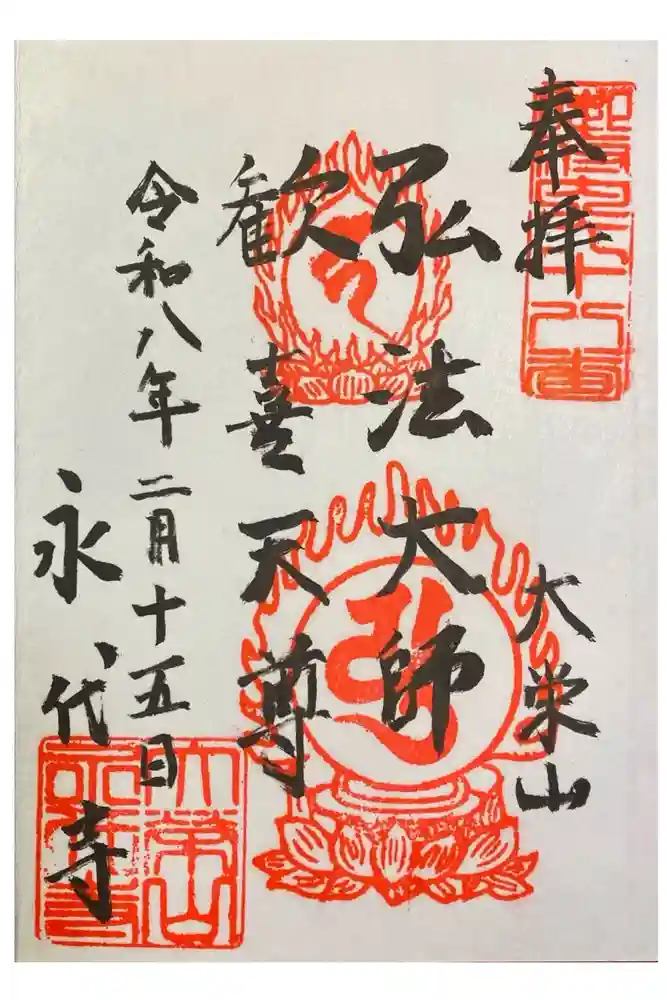 奉拝
大栄山
弘法大師
歓喜天尊
令和八年二月十五日
永代寺
大栄山
永代寺